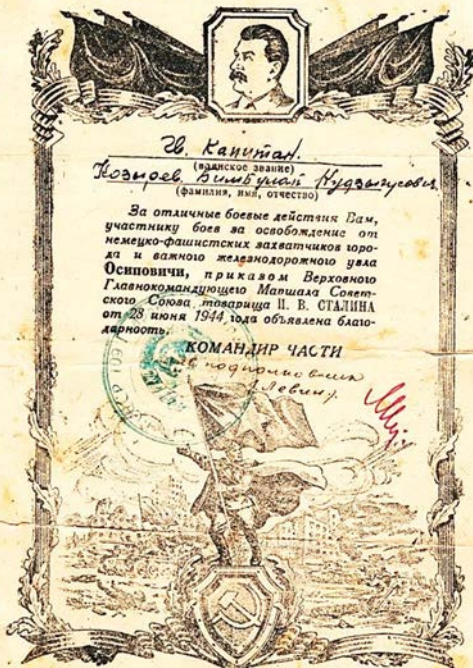 Гв. Капитан.
(воинское звание)
Козырев Бимбулат Кудзыгусович
(фамилия, имя, отчество)
За отличные боевые действия Вам,
участнику боев за освобождение от
немецко-фашистских захватчиков горо-
да и важного железнодорожного узла
Осиповичи, приказом Верховного
Главнокомандующего Маршала Совет-
ского Союза товарища И. В. СТАЛИНА
от 28 июня 1944 года объявлена благо-
дарность.
КОМАНДИР ЧАСТИ
гв подполковник
/Левин/.